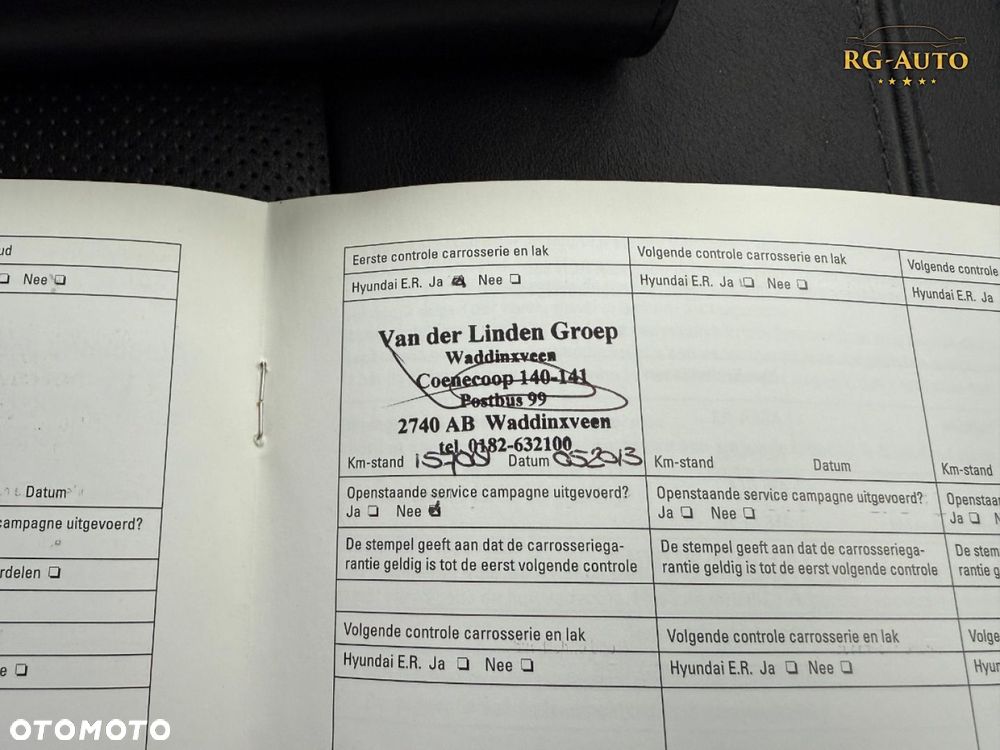 RG-AUTO
ud
Nee
Datum
campagne uitgevoerd?
rdelen
e
Eerste controle carrosserie en lak
Hyundai E.R. Ja Nee
Van der Linden Groep
Waddinxveen
Coenecoop 140-141
Postbus 99
2740 AB Waddinxveen
tel. 0182-632100
Km-stand 15700 Datum 052013
Openstaande service campagne uitgevoerd?
Ja Nee
De stempel geeft aan dat de carrosseriega-
rantie geldig is tot de eerst volgende controle
Volgende controle carrosserie en lak
Hyundai E.R. Ja Nee
Volgende controle carrosserie en lak
Hyundai E.R. Ja Nee
Km-stand Datum
Openstaande service campagne uitgevoerd?
Ja Nee
De stempel geeft aan dat de carrosseriega-
rantie geldig is tot de eerst volgende controle
Volgende controle carrosserie en lak
Hyundai E.R. Ja Nee
Volgende controle
Hyundai E.R. Ja
Km-stand
Openstaan
Ja N
De stem
rantie g
Volge
Hyun
OTOMOTO